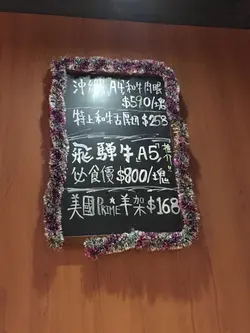 沖繩A5和牛肉眼
$590/塊
特上和牛舌厚切 $258
飛驒牛"A5"推介!!
必食價$800/塊
美國PRIME羊架$168